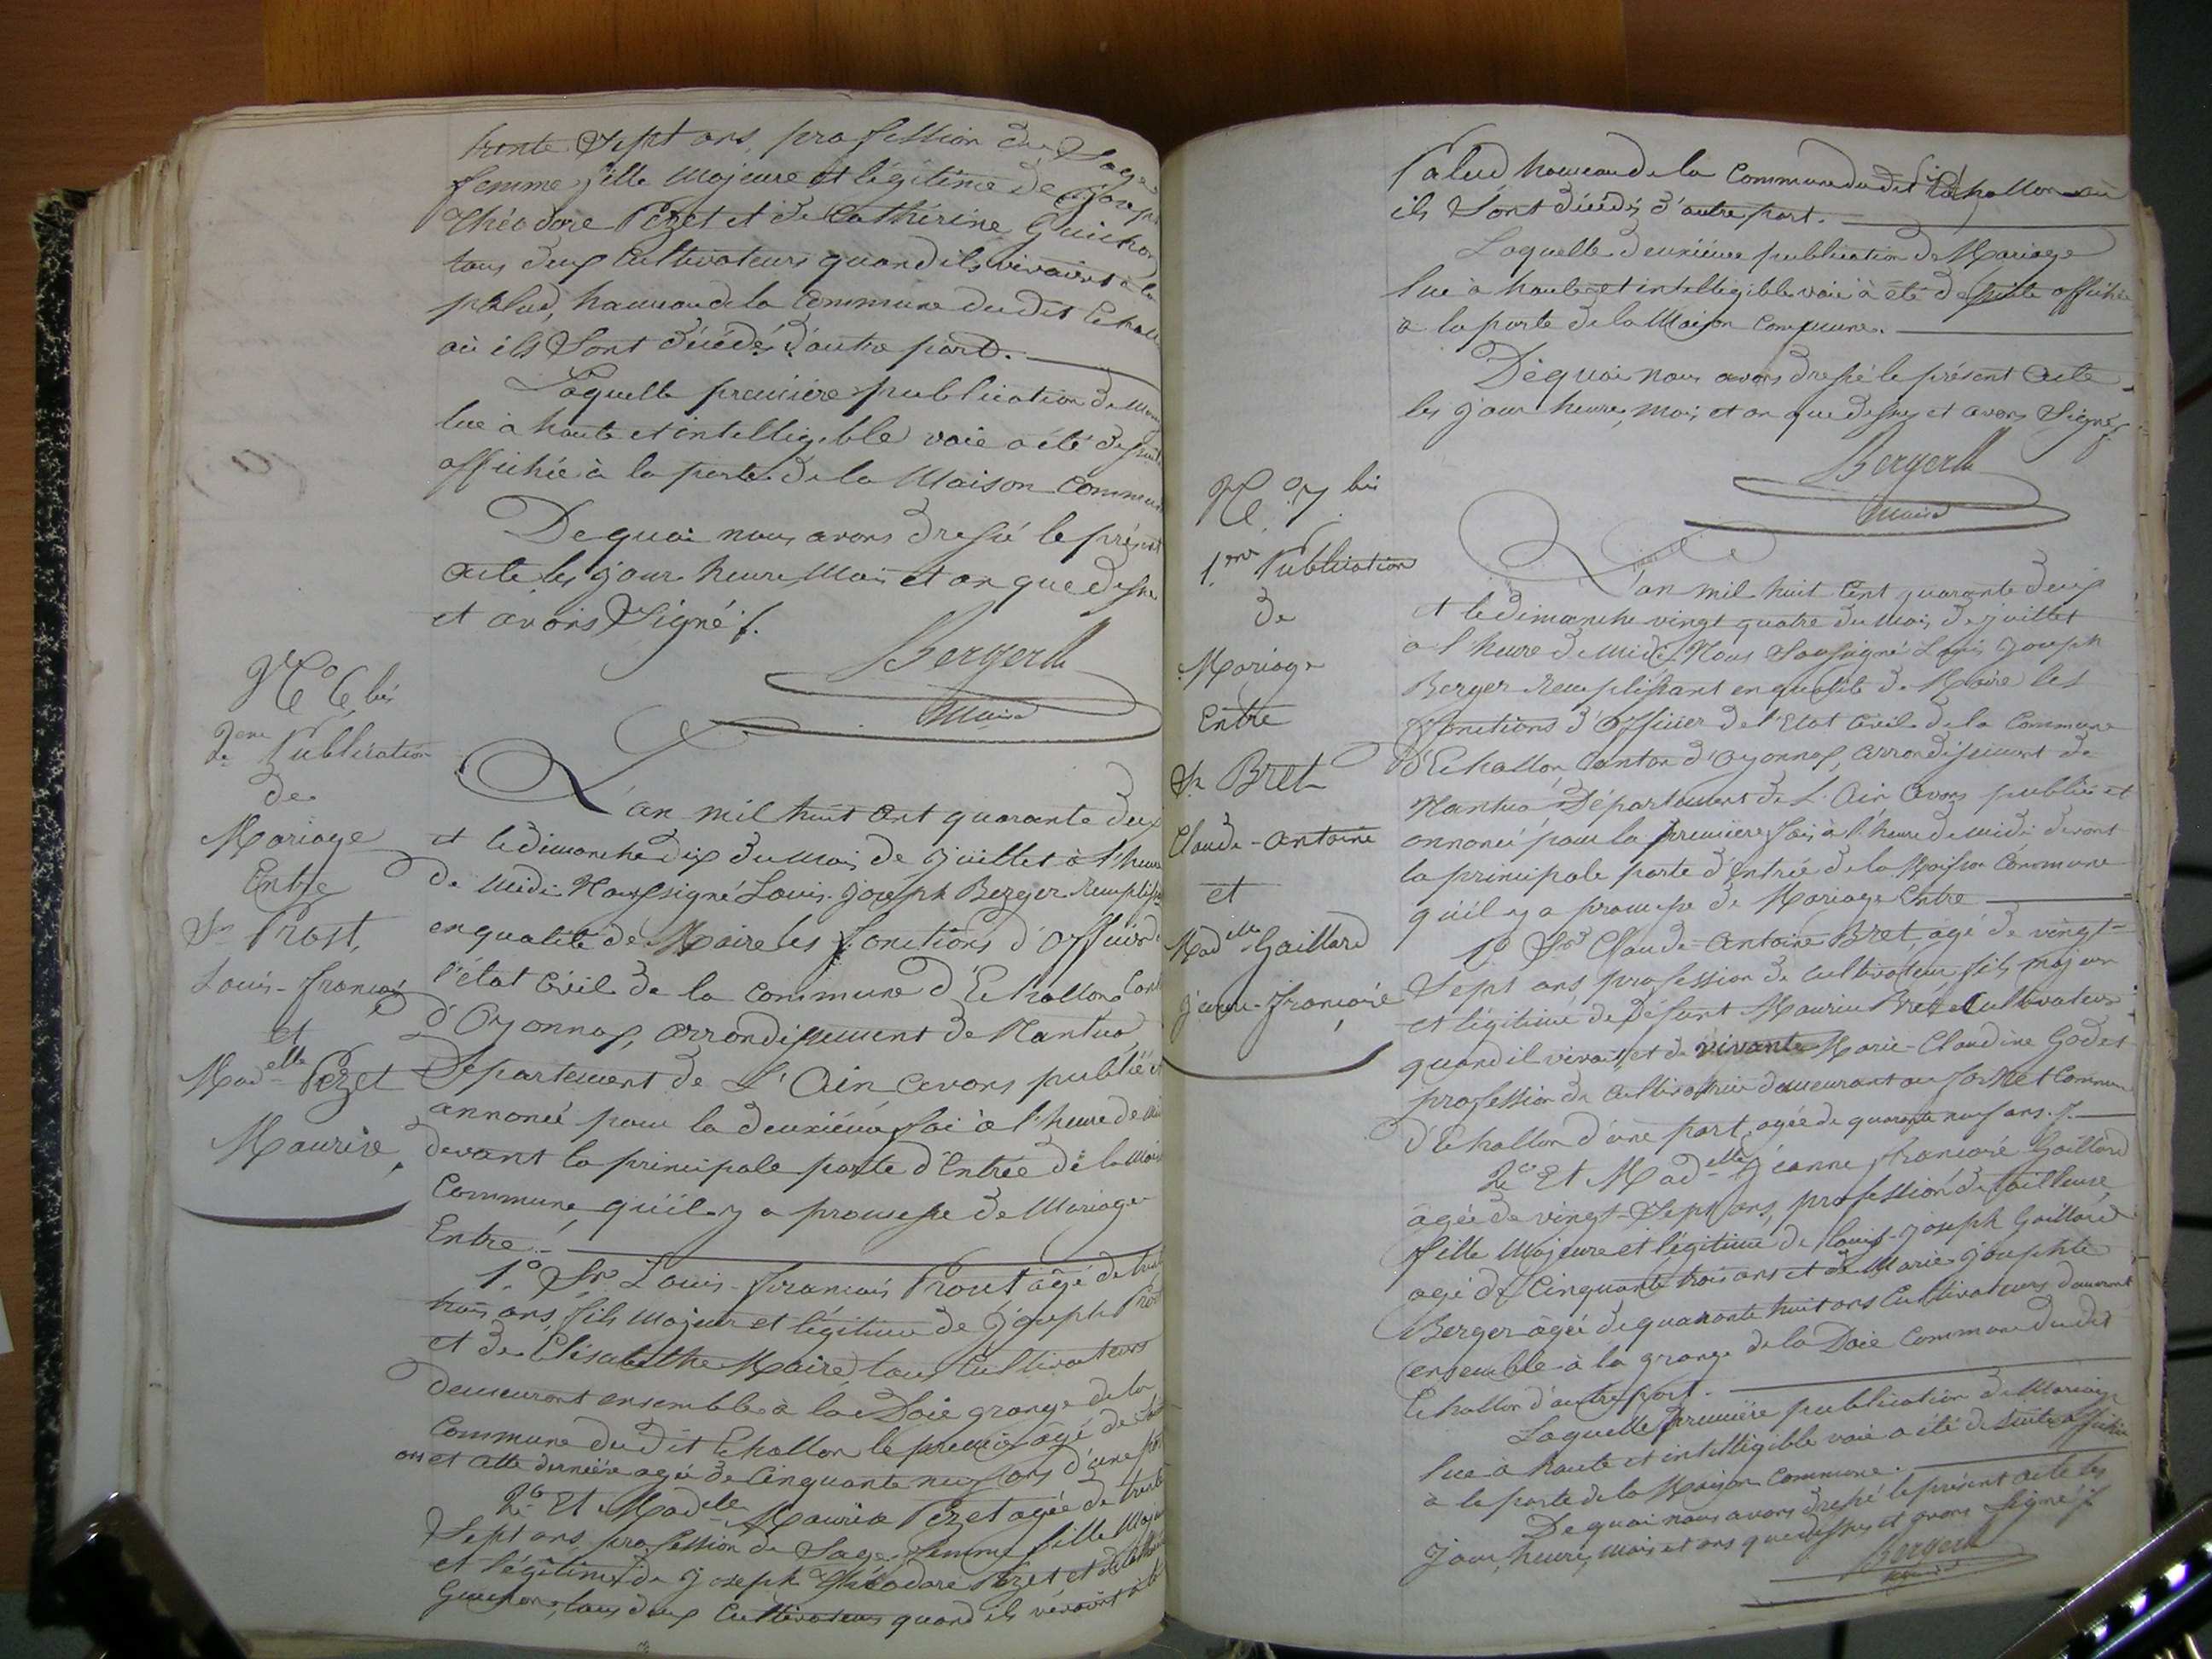 trente Sept ans, profession de Sage
femme, fille Majeure et légitime de Joseph
Théodore Pezet et de Cathérine Guichon
tous deux Cultivateurs quand ils vivaient à la
palud, hameau de la Commune du dit Echall
où ils Sont décédés d'autre part.
Laquelle première publication de
lue à haute et intelligible voie a été de suite
affichée à la porte de la Maison Commun
De quoi nous avons dressé le présent
acte les jour heure Mois et an que dessus
et avons Signé ./.
Berger
Maire
N.º 6 bis
2eme Publication
de
Mariage
Entre
Sr Prost,
Louis-françois
et
Madelle Pezet
Maurise,
L'an mil huit cent quarante deux
et le dimanche dix du Mois de Juillet à l'heure
de midi Nous signé Louis-Joseph Berger Remplissant
en qualité de Maire les fonctions d'Officier de
l'état Civil de la Commune d'Echallon Cant
d'Oyonnax, arrondissement de Nantua,
Département de L'Ain avons publié et
annoncé pour la deuxiéme foi à l'heure de mi
devant la principale porte d'Entrée de la Mais
Commune qu'il y a promesse de Mariage
Entre.-
1.º Sr. Louis-francois Prost âgé de trente
trois ans, fils Majeur et légitime de Joseph Prost
et de Elisabethe Maire, tous Cultivateurs
demeurant ensemble à la Doie grange de la
Commune du dit Echallon le premier âgé de
ans et cette dernière agée de Cinquante neuf ans d'une part
2.º Et Madelle Maurise Pezet agée de trente
Sept ans, profession de Sage femme fille Majeure
et légitime de Joseph Théodore Pezet et de Cathérine
Guichon, tous deux Cultivateurs quand ils vivaient à la
Palud hameau de la Commune du dit Echallon où
ils Sont décédés d'autre part.
Laquelle deuxiéme publication de Mariage
lue à haute et intelligible voie à été de suite affichée
à la porte de la Maison Commune.
De quoi nous avons dressé le présent acte
les jour heure, Mois et an que dessus et avons Signé
Berger
Maire
N.º 7 bis
1.ere Publication
de
Mariage
Entre
Sr Bret
Claude-Antoine
et
Madelle Gaillard
Jeanne-françoise
L'an mil huit Cent quarante deux
et le dimanche vingt quatre du Mois de juillet
à l'heure de midi, Nous Soussigné Louis Joseph
Berger Remplissant en qualité de Maire les
fonctions d'Officier de l'Etat Civil de la Commune
d'Echallon, Canton d'Oyonnax, arrondissement de
Nantua Département de L'Ain avons publié et
annoncé pour la première foi, à l'heure de midi devant
la principale porte d'Entrée de la Maison Commune
qu'il y a promesse de Mariage Entre
1.º Sr Claude-Antoine Bret, agé de vingt-
Sept ans profession de Cultivateur fils majeur
et légitime de Défunt Maurice Bret Cultivateur
quand il vivait, et de vivante Marie-Claudine Godet
profession de Cultivatrice demeurant au Commune
d'Echallon d'une part, agée de quarante neuf ans. ./.
2.º Et Madelle Jeanne françoise Gaillard
âgée de vingt-Sept ans, profession de tailleuse,
fille Majeure et légitime de Louis-Joseph Gaillard
agé de Cinquante trois ans et de Marie-Josephte
Berger âgée de quarante huit ans Cultivateurs demeurant
ensemble à la grange de la Doie Commune du dit
Echallon d'autre part.
Laquelle première publication de Mariage
lue à haute et intelligible voie a été de suite affichée
à la porte de la Maison Commune.
De quoi nous avons dressé le présent acte les
jour, heure, Mois et ans que dessus et avons Signé ./.
Berger
Maire